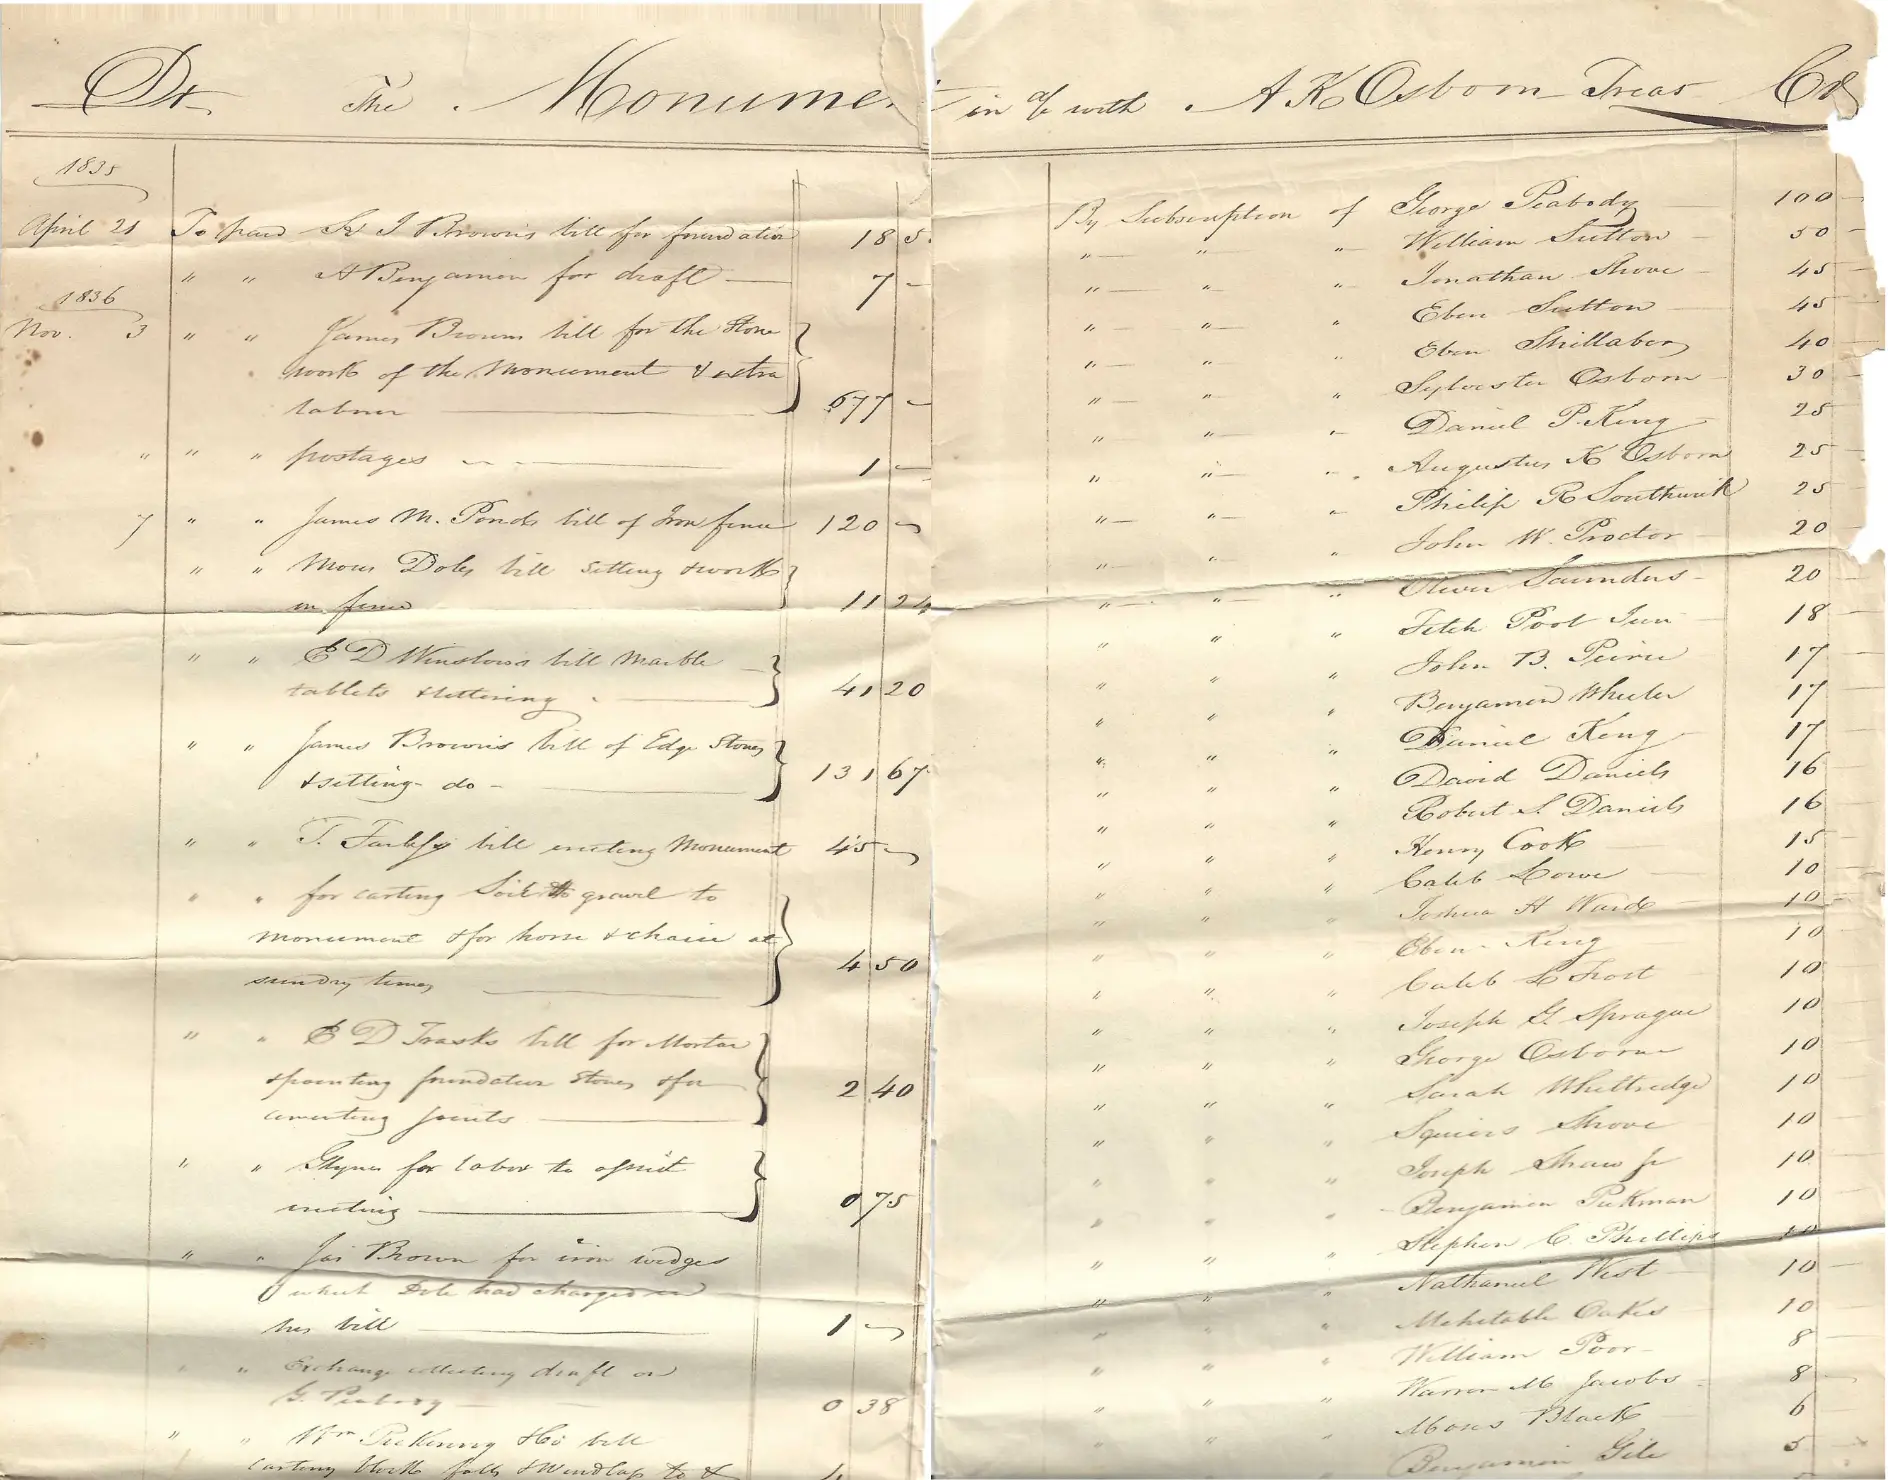 Dr The Monumen
1835
April 21 To paid K J Brown's bill for foundation 18 5
" " A Benjamin for draft — 7 —
1836
Nov. 3 " " James Browns bill for the Stone
work of the Monument & extra
labour — 677 —
" " " postages — 1 —
7 " " James M. Ponds bill of Iron fence 120 —
" " Moses Doles bill setting & work
on fence 11 24
" " E D Winslows bill Marble
tablets & lettering — 41 20
" " James Browns bill of Edge Stones
& setting do — 131 67
" " T. bill erecting Monument 45 —
" " for carting Soil & gravel to
monument & for horse & chaise at
sundry times — 4 50
" " E D Trasks bill for Mortar
& pointing foundation Stones & for
cementing joints — 2 40
" " for labor to assist
erecting — 0 75
" " Jas Brown for iron wedges
which Dole had charged in
his bill — 1 —
" " Exchange collecting draft on
G. Peabody — 0 38
" " Wm Pickering & Co bill
carting block falls & Windlass to &
in a/c with A K Osborn Treas Cr
By Subscription of George Peabody — 100 —
" — " " William Sutton — 50 —
" — " " Jonathan Shove — 45 —
" — " " Eben Sutton — 45
" — " " Eben Shillaber 40 —
" — " " Sylvester Osborn — 30
" — " " Daniel P. King — 25
" — " " Augustus K Osborn 25 —
" — " " Philip R Southwick 25
" — " " John W. Proctor — 20
" — " " Oliver Saunders — 20 —
" " " Fitch Pool Jun 18 —
" " " John B. Peirce 17 —
" " " Benjamin Wheeler 17 —
" " " Daniel King — 17
" " " David Daniels 16
" " " Robert S. Daniels 16
" " " Henry Cook 15
" " " Caleb Lowe — 10
" " " Joshua H Ward — 10
" " " Eben King 10
" " " Caleb L Frost 10
" " " Joseph G. Sprague 10
" " " George Osborne 10
" " " Sarah Whittredge 10
" " " Squiers Shove 10
" " " Joseph Shaw Jr 10
" " " Benjamin Pickman 10
" " " Stephen C. Phillips 10
" " " Nathaniel West 10 —
" " " Mehitable Oakes 10
" " " William Poor — 8
" " " Warren M Jacobs — 8
" " " Moses Black 6
" " " Benjamin Gile 5